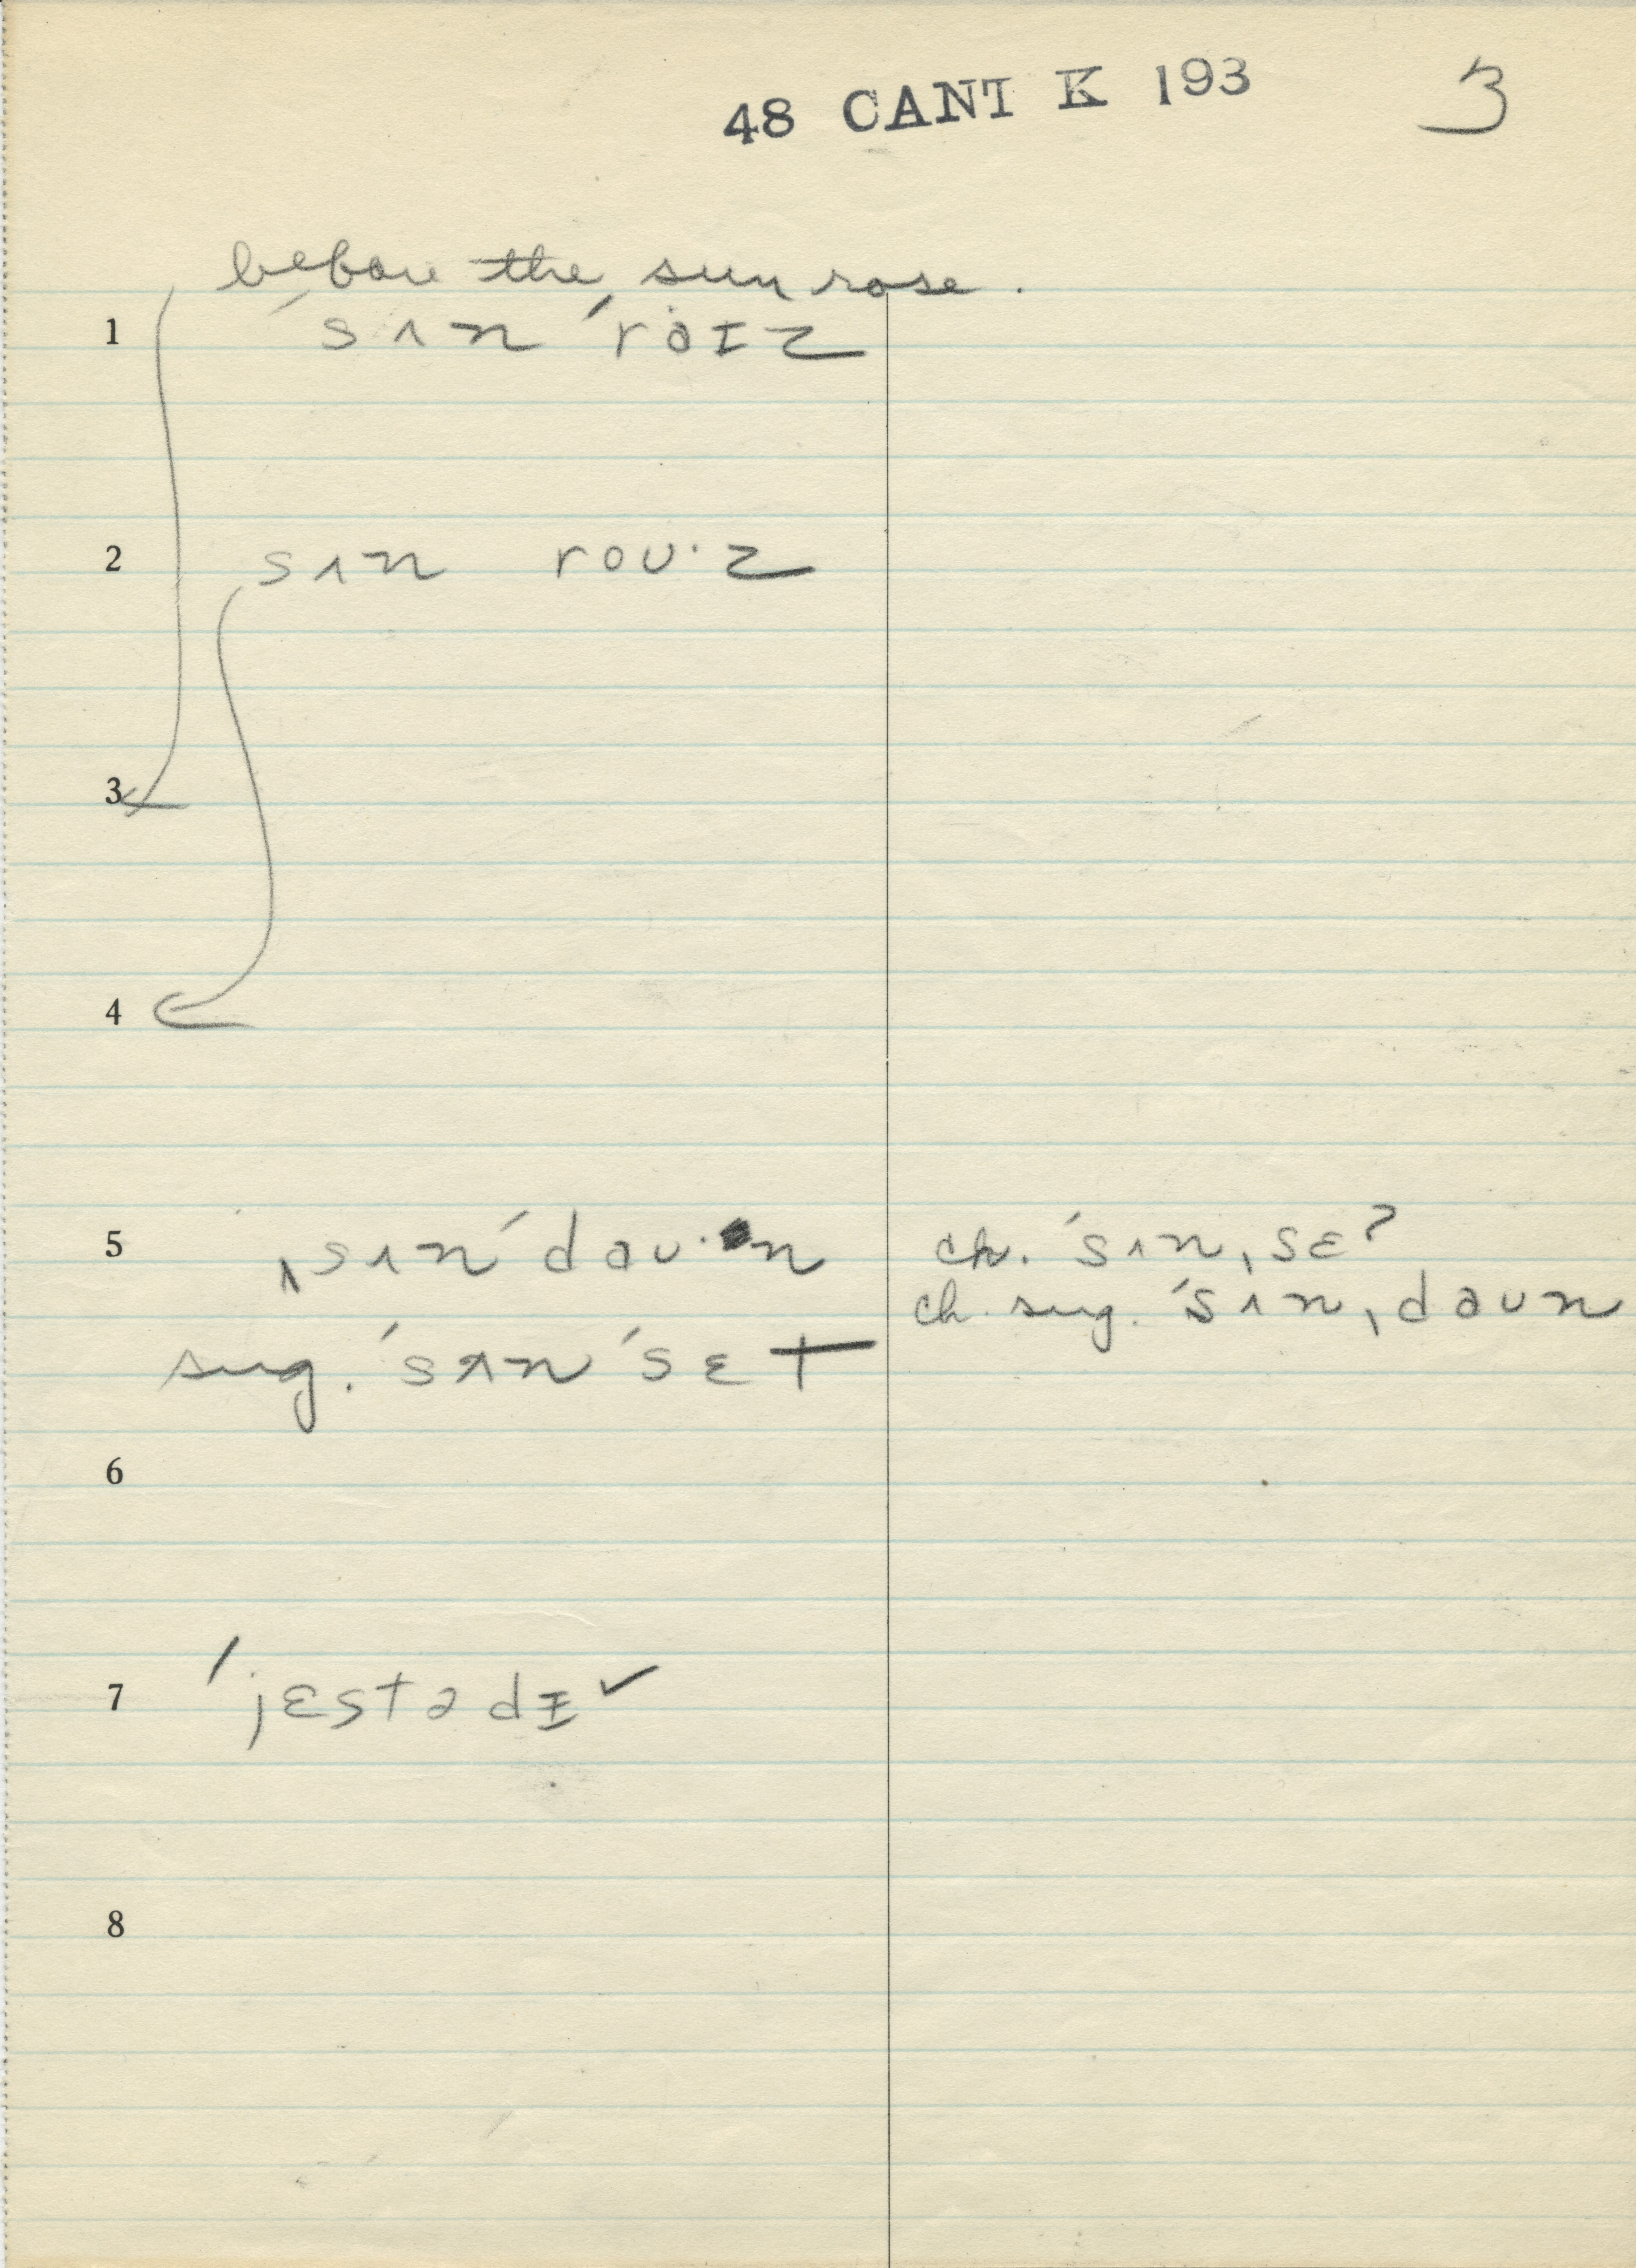 48 CANT K 193 3
before the sun rose.
1 ˈsʌn ˈraɪz
2 sʌn roʊ·z
3
4
5 ˌsʌnˈdaʊ·n ch. ˈsʌnˌsɛʔ
ch. sug. ˈsʌnˌdaʊn
sug. ˈsʌnˈsɛt
6
7 ˈjɛstədɪˇ
8